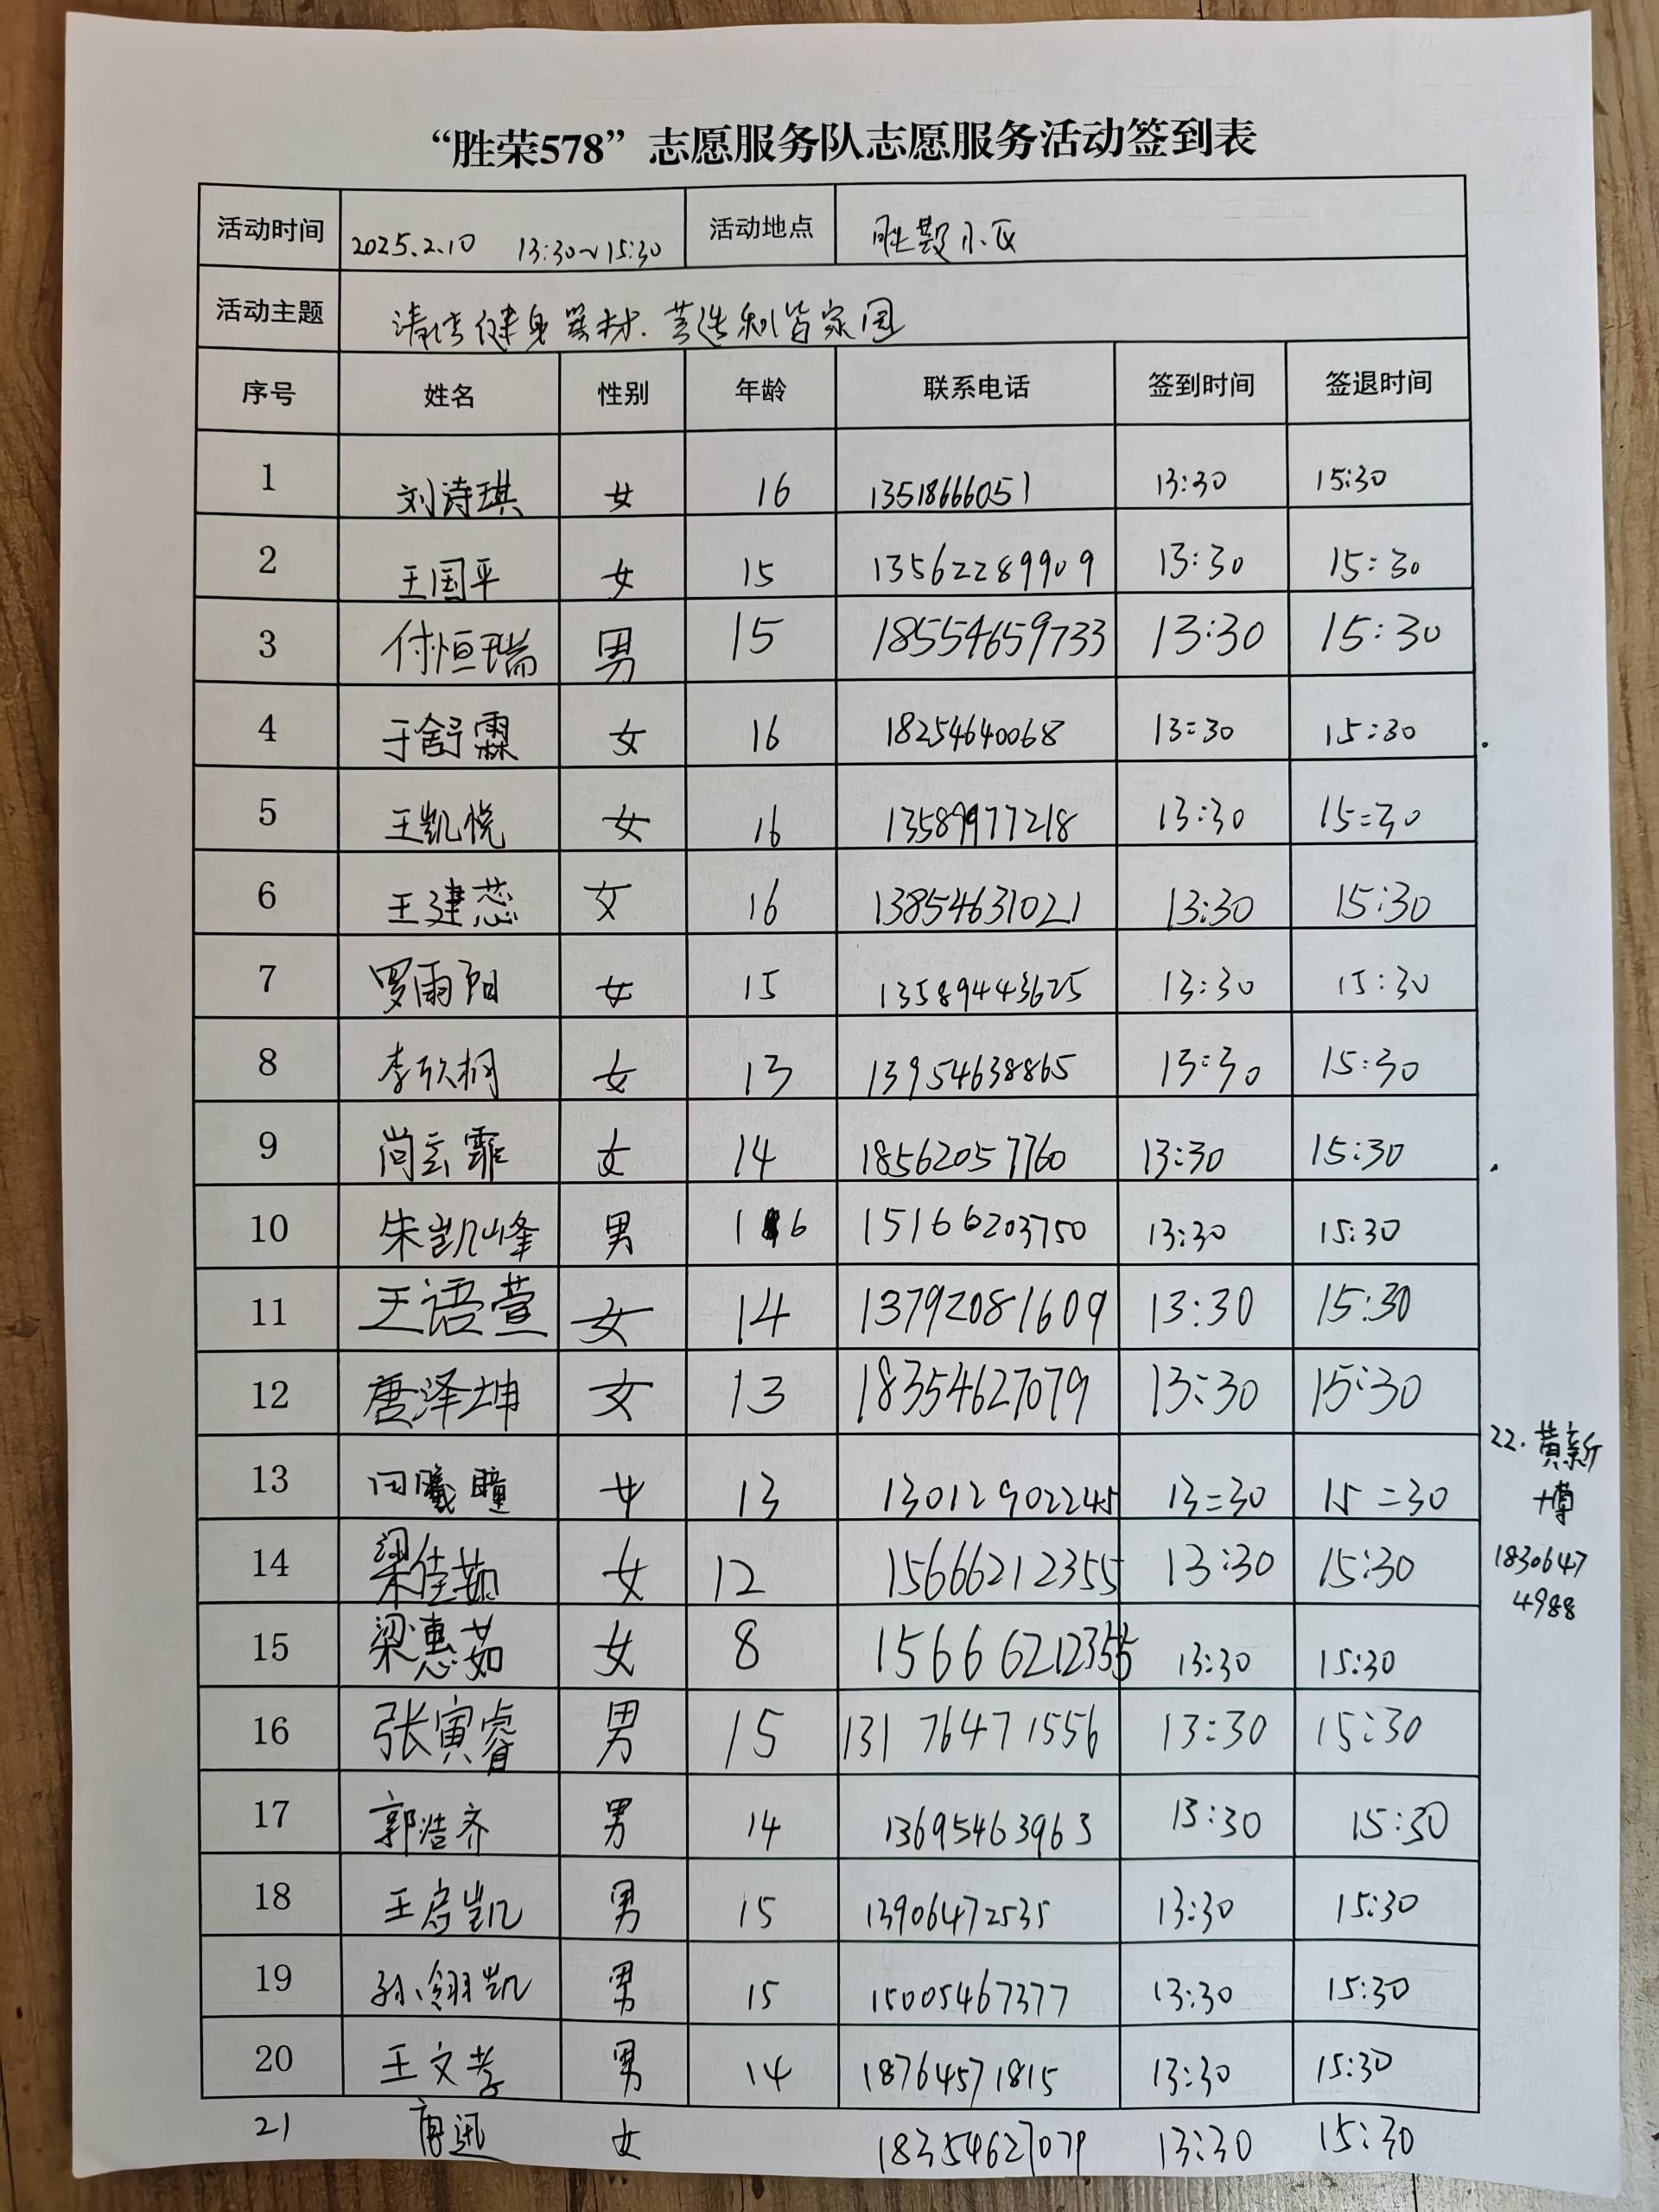 “胜荣578”志愿服务队志愿服务活动签到表
活动时间 2025.2.10 13:30~15:30 活动地点 胜 小区
活动主题 清洁健身器材.共造和谐家园
序号 姓名 性别 年龄 联系电话 签到时间 签退时间
1 刘诗琪 女 16 13518666051 13:30 15:30
2 王国平 女 15 13562289909 13:30 15:30
3 付恒瑞 男 15 18554659733 13:30 15:30
4 于舒霖 女 16 18254640068 13:30 15:30
5 王凯悦 女 16 13589977218 13:30 15:30
6 王建蕊 女 16 13854631021 13:30 15:30
7 罗雨阳 女 15 13589443625 13:30 15:30
8 李欣桐 女 13 13954638865 13:30 15:30
9 尚云霏 女 14 18562057760 13:30 15:30
10 朱凯峰 男 16 15166203750 13:30 15:30
11 王语萱 女 14 13792081609 13:30 15:30
12 唐泽坤 女 13 18354627079 13:30 15:30
13 闫曦瞳 女 13 13012902245 13:30 15:30
14 梁佳茹 女 12 15666212355 13:30 15:30
15 梁惠茹 女 8 15666212355 13:30 15:30
16 张寅睿 男 15 13176471556 13:30 15:30
17 郭浩齐 男 14 13695463963 13:30 15:30
18 王启凯 男 15 13906472535 13:30 15:30
19 孙翎凯 男 15 15005467377 13:30 15:30
20 王文孝 男 14 18764571815 13:30 15:30
21 唐迅 女 18354627079 13:30 15:30
22.黄新
博
1830647
4988